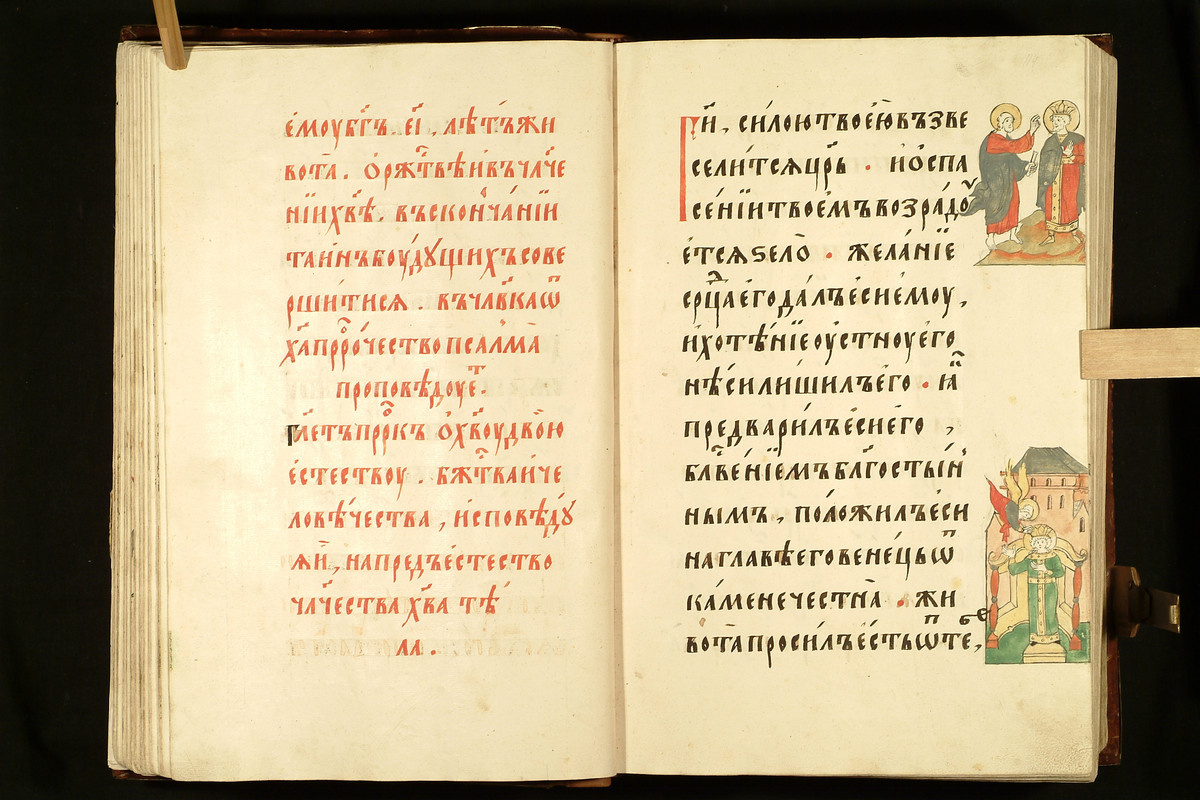 е҆моубг҃ъ. е҃і , лѣ́тъжи
вота̀. ѻ҆рж҃твѣи҆въчл҃че
нїихв҃ѣ. въсконча́нїи
таи́нъбоу́дꙋщихъсове
рши́тисѧ. въчл҃вкаѿ
х҃апрⷪ҇ро́чествопсалма̀
проповѣдоуеⷮ.
Гл҃етъпрⷪ҇ркъ ѻ҆хв҃оудво́ю
е҆стествоу. бж҃тваиче
ловѣ́чества, и҆сповѣ́дꙋ
ѧ́й, напредъе҆стество
чл҃чества хв҃а тѣ́
ла.
Гⷭ҇и, си́лоютвое́ювъзве
сели́тсѧцр҃ь. и҆ѻ҆спа
се́нїитвое́мъвозра́доⷹ
е́тсѧѕело̀. жела́нїе
срⷣцае҆года́лъе҆сие҆моу,
и҆хотѣ́нїеоу҆стноуе҆го
нѣсилиши́лъе҆го. ꙗ҆́ⷦ
предвари́лъе҆сие҆го,
блгⷭ҇ве́нїемъбл҃госты́н
нымъ, положи́лъе҆си
наглавѣ̀его̀вене́цьѿ
ка́менечестна̀. жи
вота̀проси́лъе҆́стьѿте,
бе